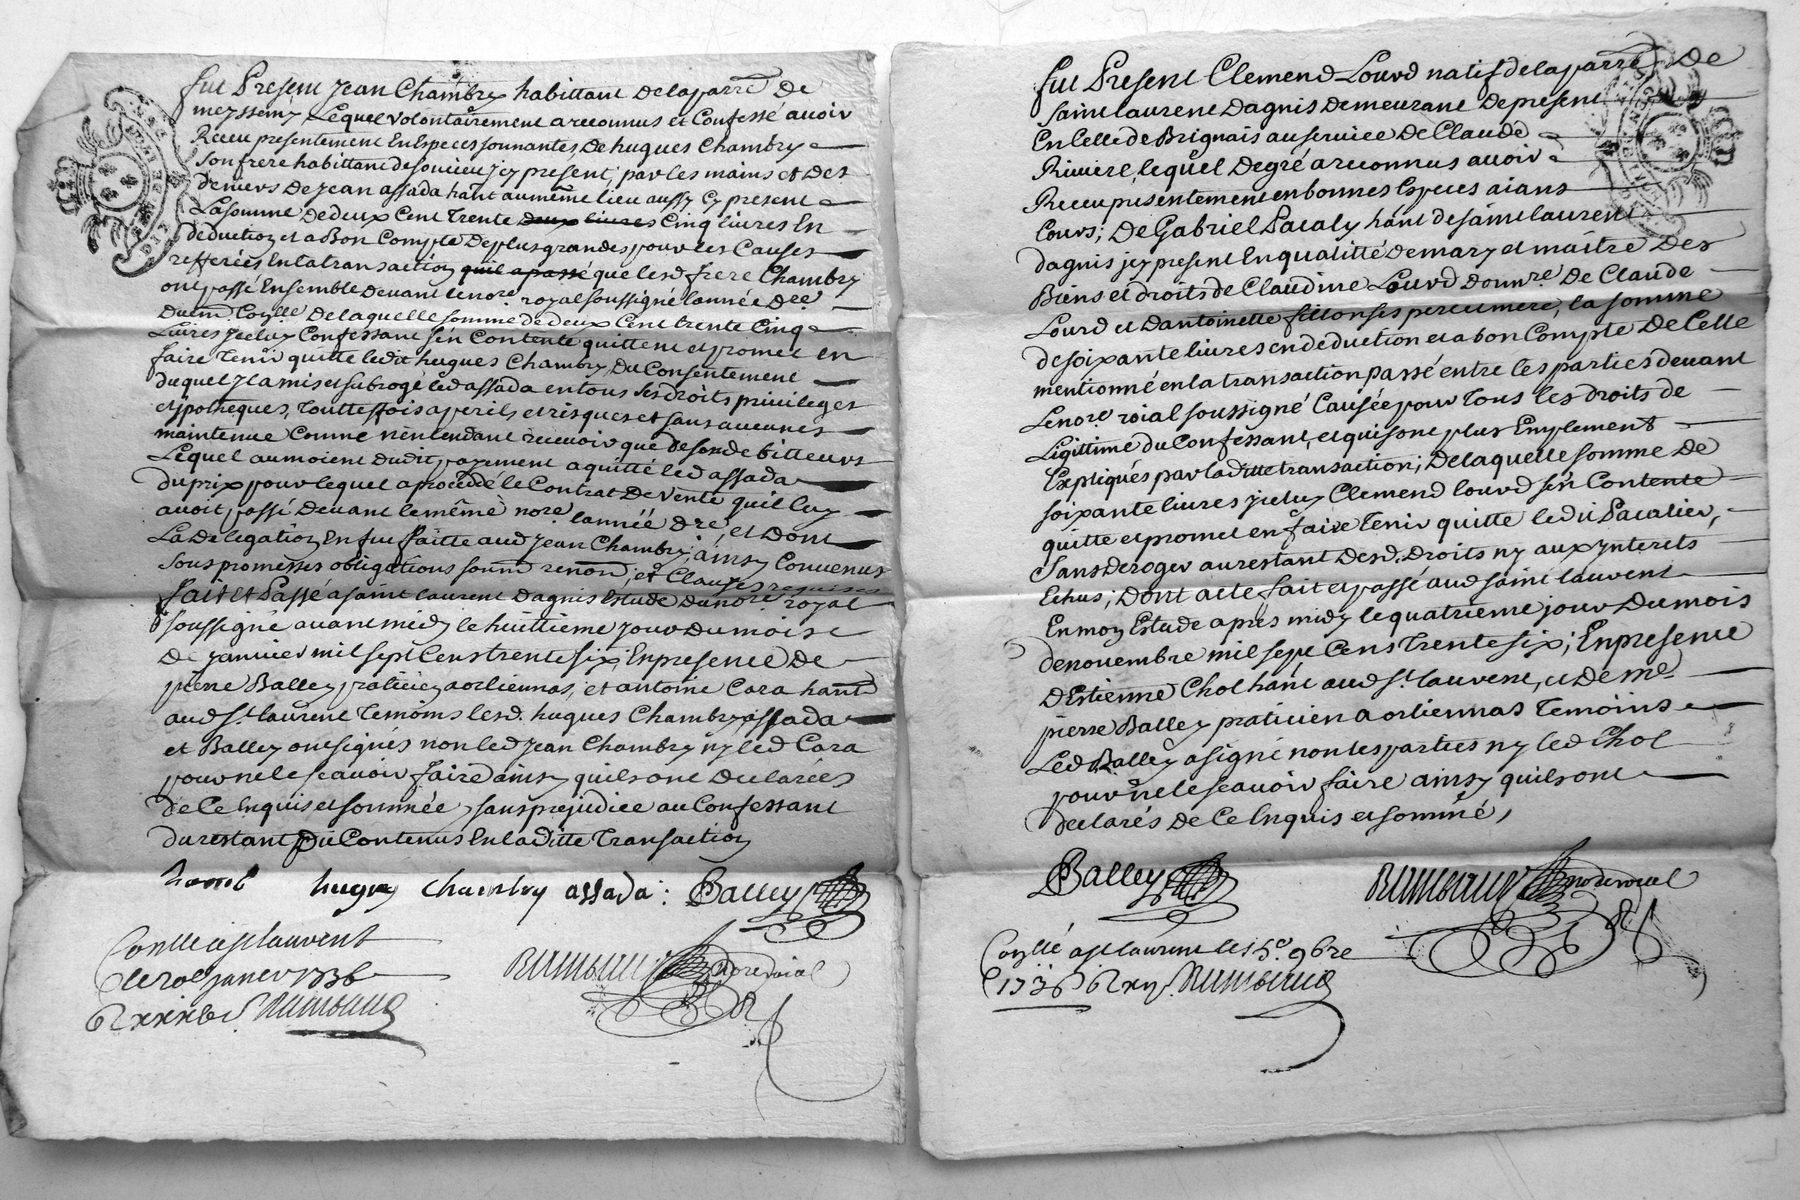 fut Present Jean Chambry habittant delaparre de
meyssemy Lequel volontairement a reconnus et Confessé avoir
Receu presentement En Especes sonnantes, De hugues Chambry
son frere habittant de soucieu jcy present, par les mains et des
deniers De jean assada hant au même lieu aussy cy present
La somme de deux Cent Trente deux livres Cinq livres En
deduction et a Bon Compte De plus grandes pour les Causes
refferées En la transaction quil a passé que lesd frere Chambry
ont passé Ensemble devant le nore royal soussigné lannée dre
De laquelle somme de deux Cent trente Cinq
Livres jceluy Confessant sen Contente quitte et promet en
faire Tenir quitte ledit hugues Chambry, Du Consentement
duquel jl a mis et subrogé led assada en tous ses droits privileges
et jpotheques, Touttesfois a perils et risques et sans aucunes
maintenue Comme nentendant recevoir que de son debitteurs
Lequel au moient dudit payement a quitté led assada
du prix pour lequel a procedé le Contrat De Vente quil luy
avoit passé devant le même nore lannée dre et Dont
La Delegation En fut faitte aud jean Chambry, ainsy Convenus
sous promesses obligations soum renon, et Clauses requises
fait et Passé a saint laurent dagnis Estude du nore royal
soussigné avant midy le huittieme jour du mois
De janvier mil sept Cens trente six, En presence De
pierre Balley praticien a orliennas, et antoine Cara hant
aud st laurent Temoins lesd. hugues Chambry, assada
et Balley ont signés non led jean Chambry ny led Cara
pour ne le scavoir faire ainsy quils ont declarées
de Ce Enquis et sommée, sans prejudice au Confessant
du restant Du Contenus En laditte Transaction
hugue chambry assada: Balley
Conllé a st laurent
le 20e janer 1736
Rxxxs
nore roial
fut Present Clemend Lourd natif de laparre De
saint laurent Dagnis Demeurant De present
En Celle de Brignais au service De Claude
Riviere, lequel De gré a reconnus avoir
Receu presentement en bonnes Especes aians
Cours; De Gabriel Pacaly hant de saint laurent
dagnis jcy present En qualitté De mary et maitre Des
Biens et droits de Claudine Lourd donnre De Claude
Lourd et Dantoinette fillon ses pere et mere, la somme
de soixante livres en deduction et a bon Compte De Celle
mentionné en la transaction passé entre les parties devant
Le nore roial soussigné Causée pour Tous les droits de
Legittime du Confessant, et qui sont plus Emplement
Expliqués par laditte transaction; De laquelle somme De
soixante livres jceluy Clemend lourd sen Contente
quitte et promet en faire Tenir quitte ledit Pacalier,
sans deroger au restant Desd. Droits ny aux ynterets
Echus; Dont acte fait et passé aud saint laurent
En mon Estude apres midy le quatrieme jour Du mois
de novembre mil sept Cens Trente six; En presence
DEstienne Chol hant aud st laurent, et De me
pierre Balley praticien a orliennas Temoins
Led Balley a signé non les parties ny led Chol
pour ne le scavoir faire ainsy quils ont
declarés De Ce Enquis et sommé,
Balley
nore roial
Conllé a st laurent le 15e 9bre
1736